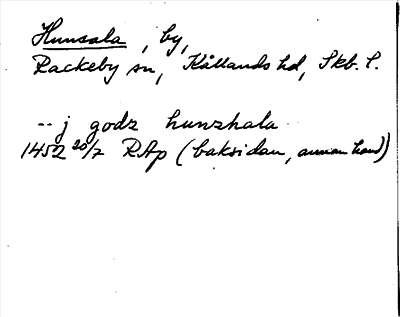 Hunsala, by,
Rackeby sn, Kållands hd, Skb. l.
-- j godz hunzhala
1452 20/7 RAp (baksidan, annan hand)